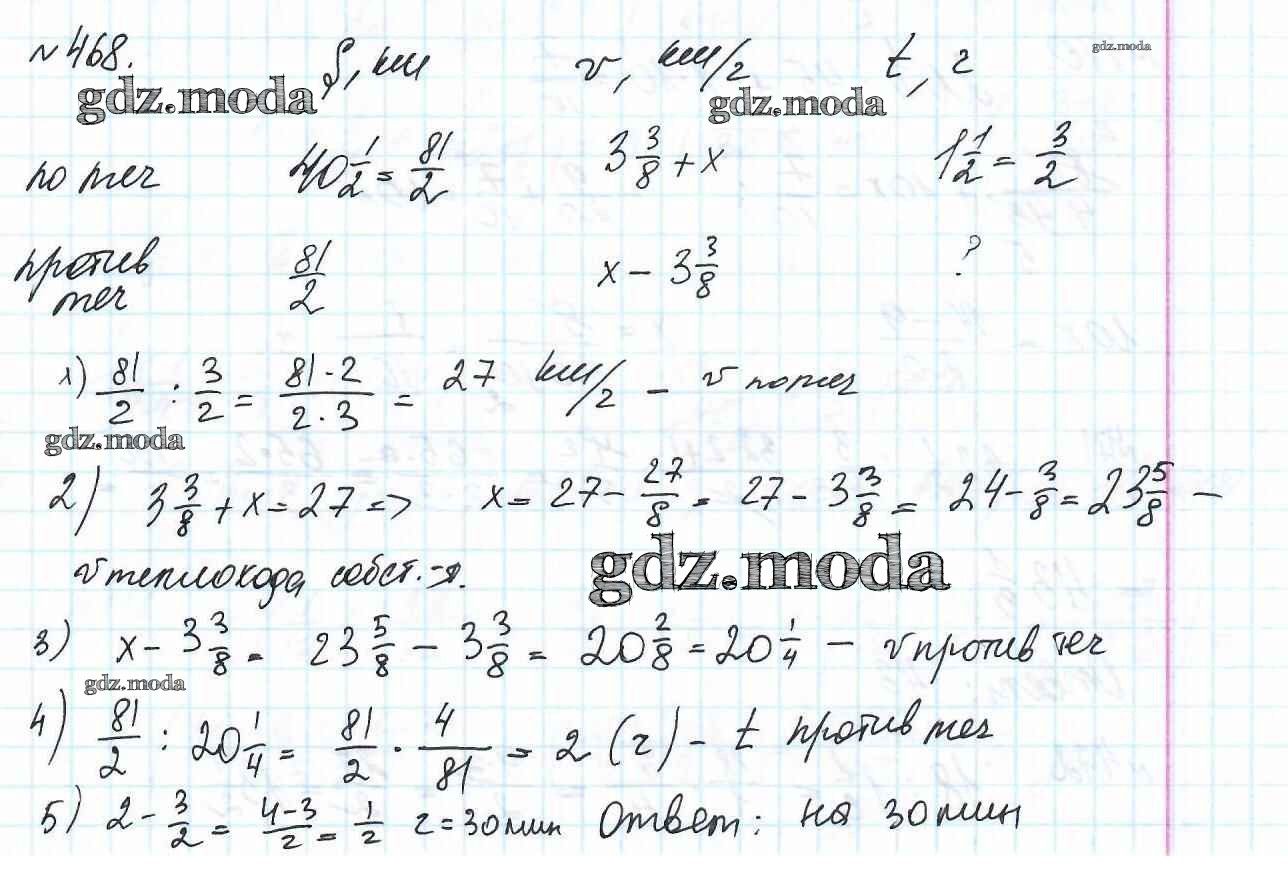 №468.
S, км	v, км/г	t, г
gdz.moda
gdz.moda
gdz.moda
по теч	40 1/2 = 81/2	3 3/8 + x	1 1/2 = 3/2
против теч	81/2	x - 3 3/8	?
1) 81/2 : 3/2 = 81·2/2·3 = 27 км/г - v по теч
gdz.moda
2) 3 3/8 + x = 27 => x = 27 - 27/8 = 27 - 3 3/8 = 24 - 3/8 = 23 5/8 -
v теплохода собст.-я.
gdz.moda
3) x - 3 3/8 = 23 5/8 - 3 3/8 = 20 2/8 = 20 1/4 - v против теч
gdz.moda
4) 81/2 : 20 1/4 = 81/2 · 4/81 = 2 (г) - t против теч
5) 2 - 3/2 = 4-3/2 = 1/2 г = 30 мин Ответ: на 30 мин